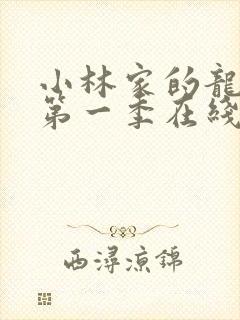 小林家的龍
第一季在綫
西潯涼錦